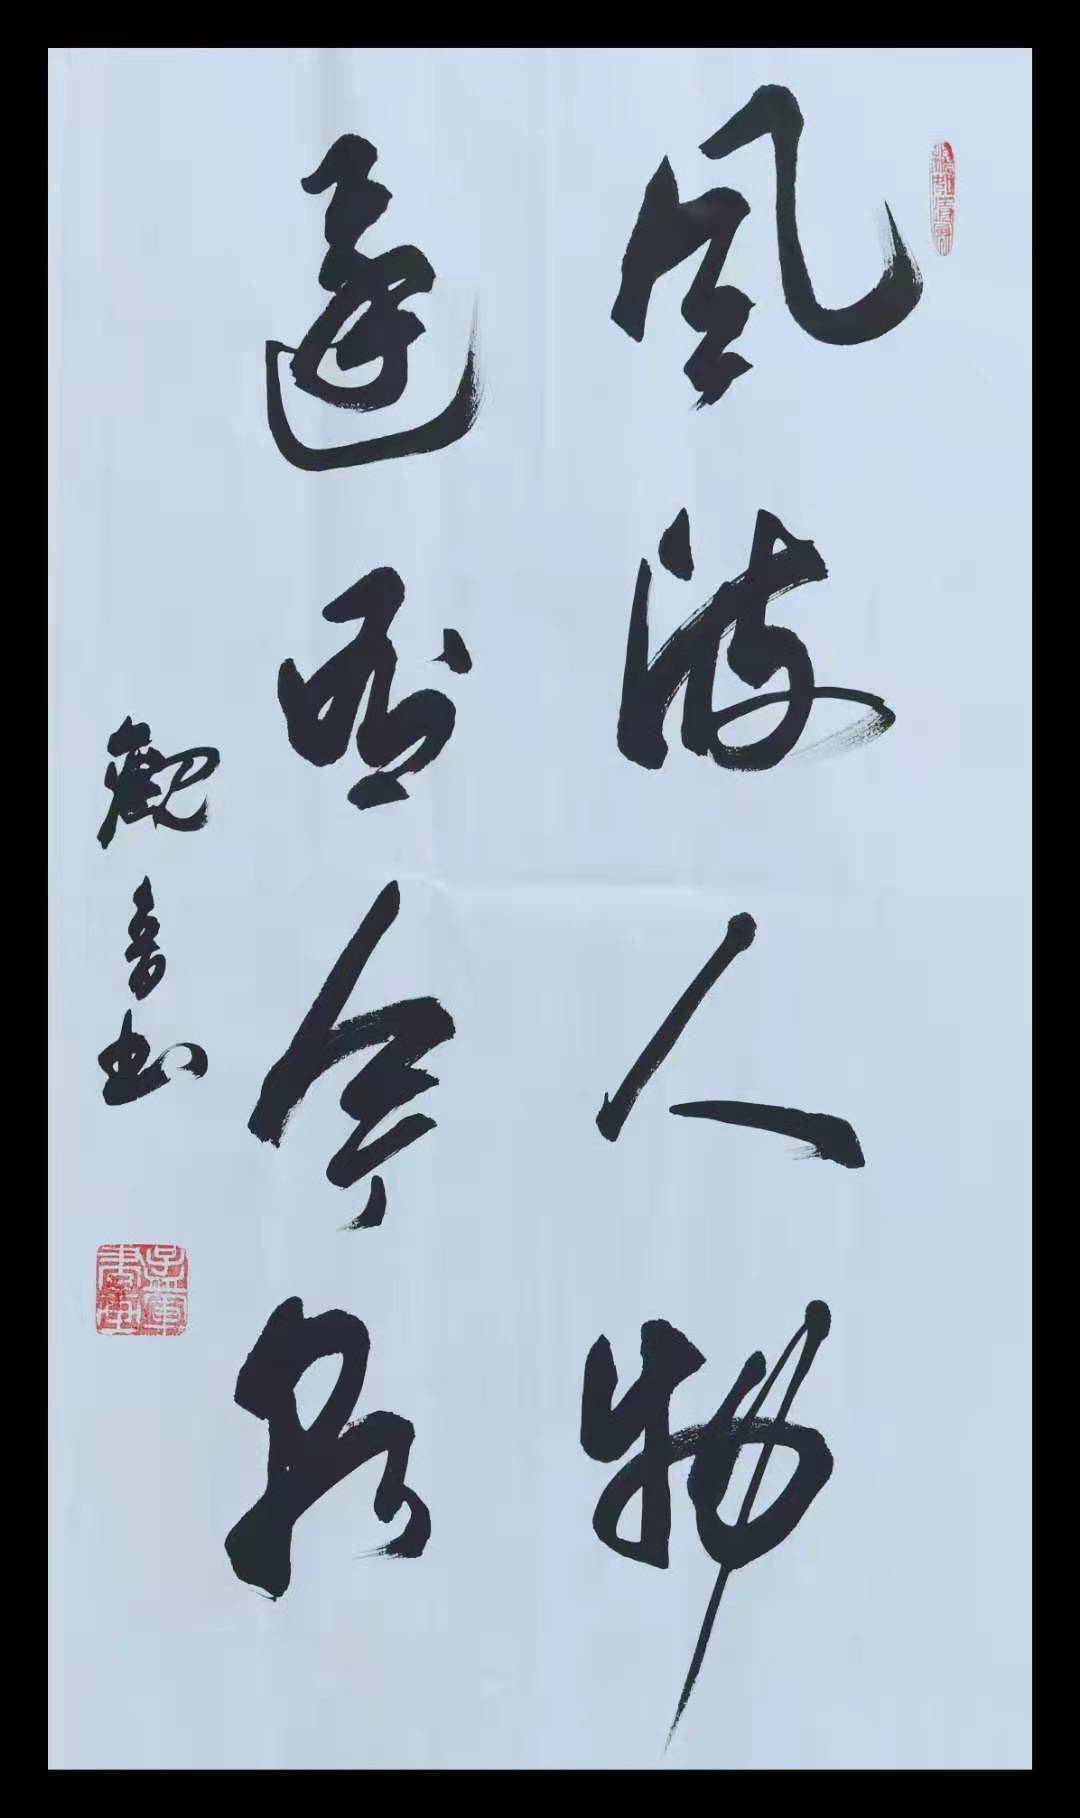 風流人物
還看今朝
觀音书